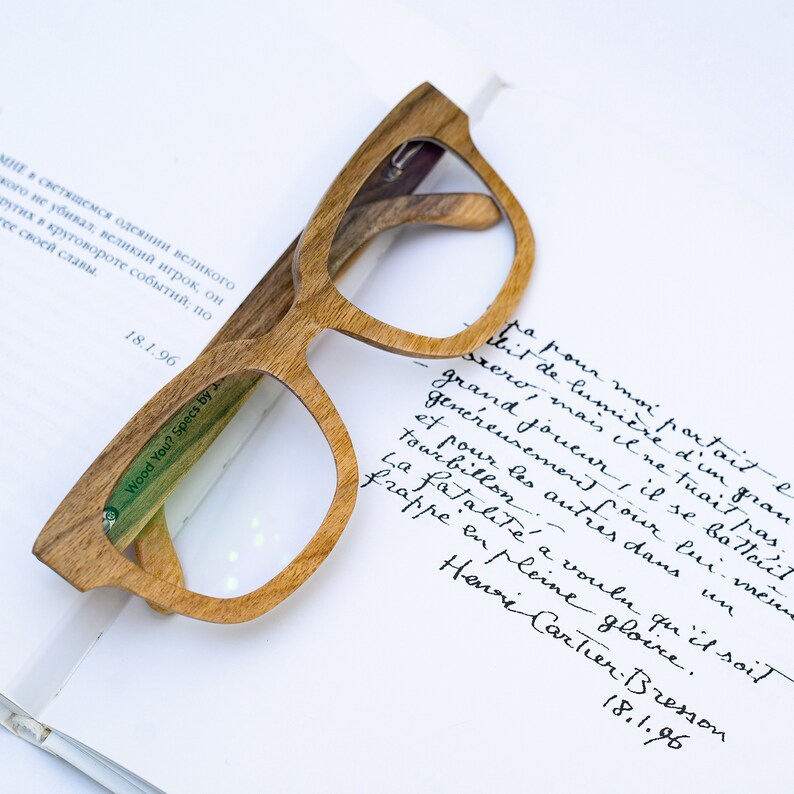 МНЕ в светящемся одеянии великого
кого не убивал; великий игрок, он
ругих в круговороте событий; по
тее своей славы.
18.1.96
Wood You? Specs by J.
ra pour moi partait
bit de lumière d'un gran
orero, mais il ne tuait pas,
grand joueur, il se battait
généreusement pour lui-mêm
et pour les autres dans un
tourbillon.
La fatalité a voulu qu'il soit
frappé en pleine gloire.
Henri Cartier-Bresson
18.1.96